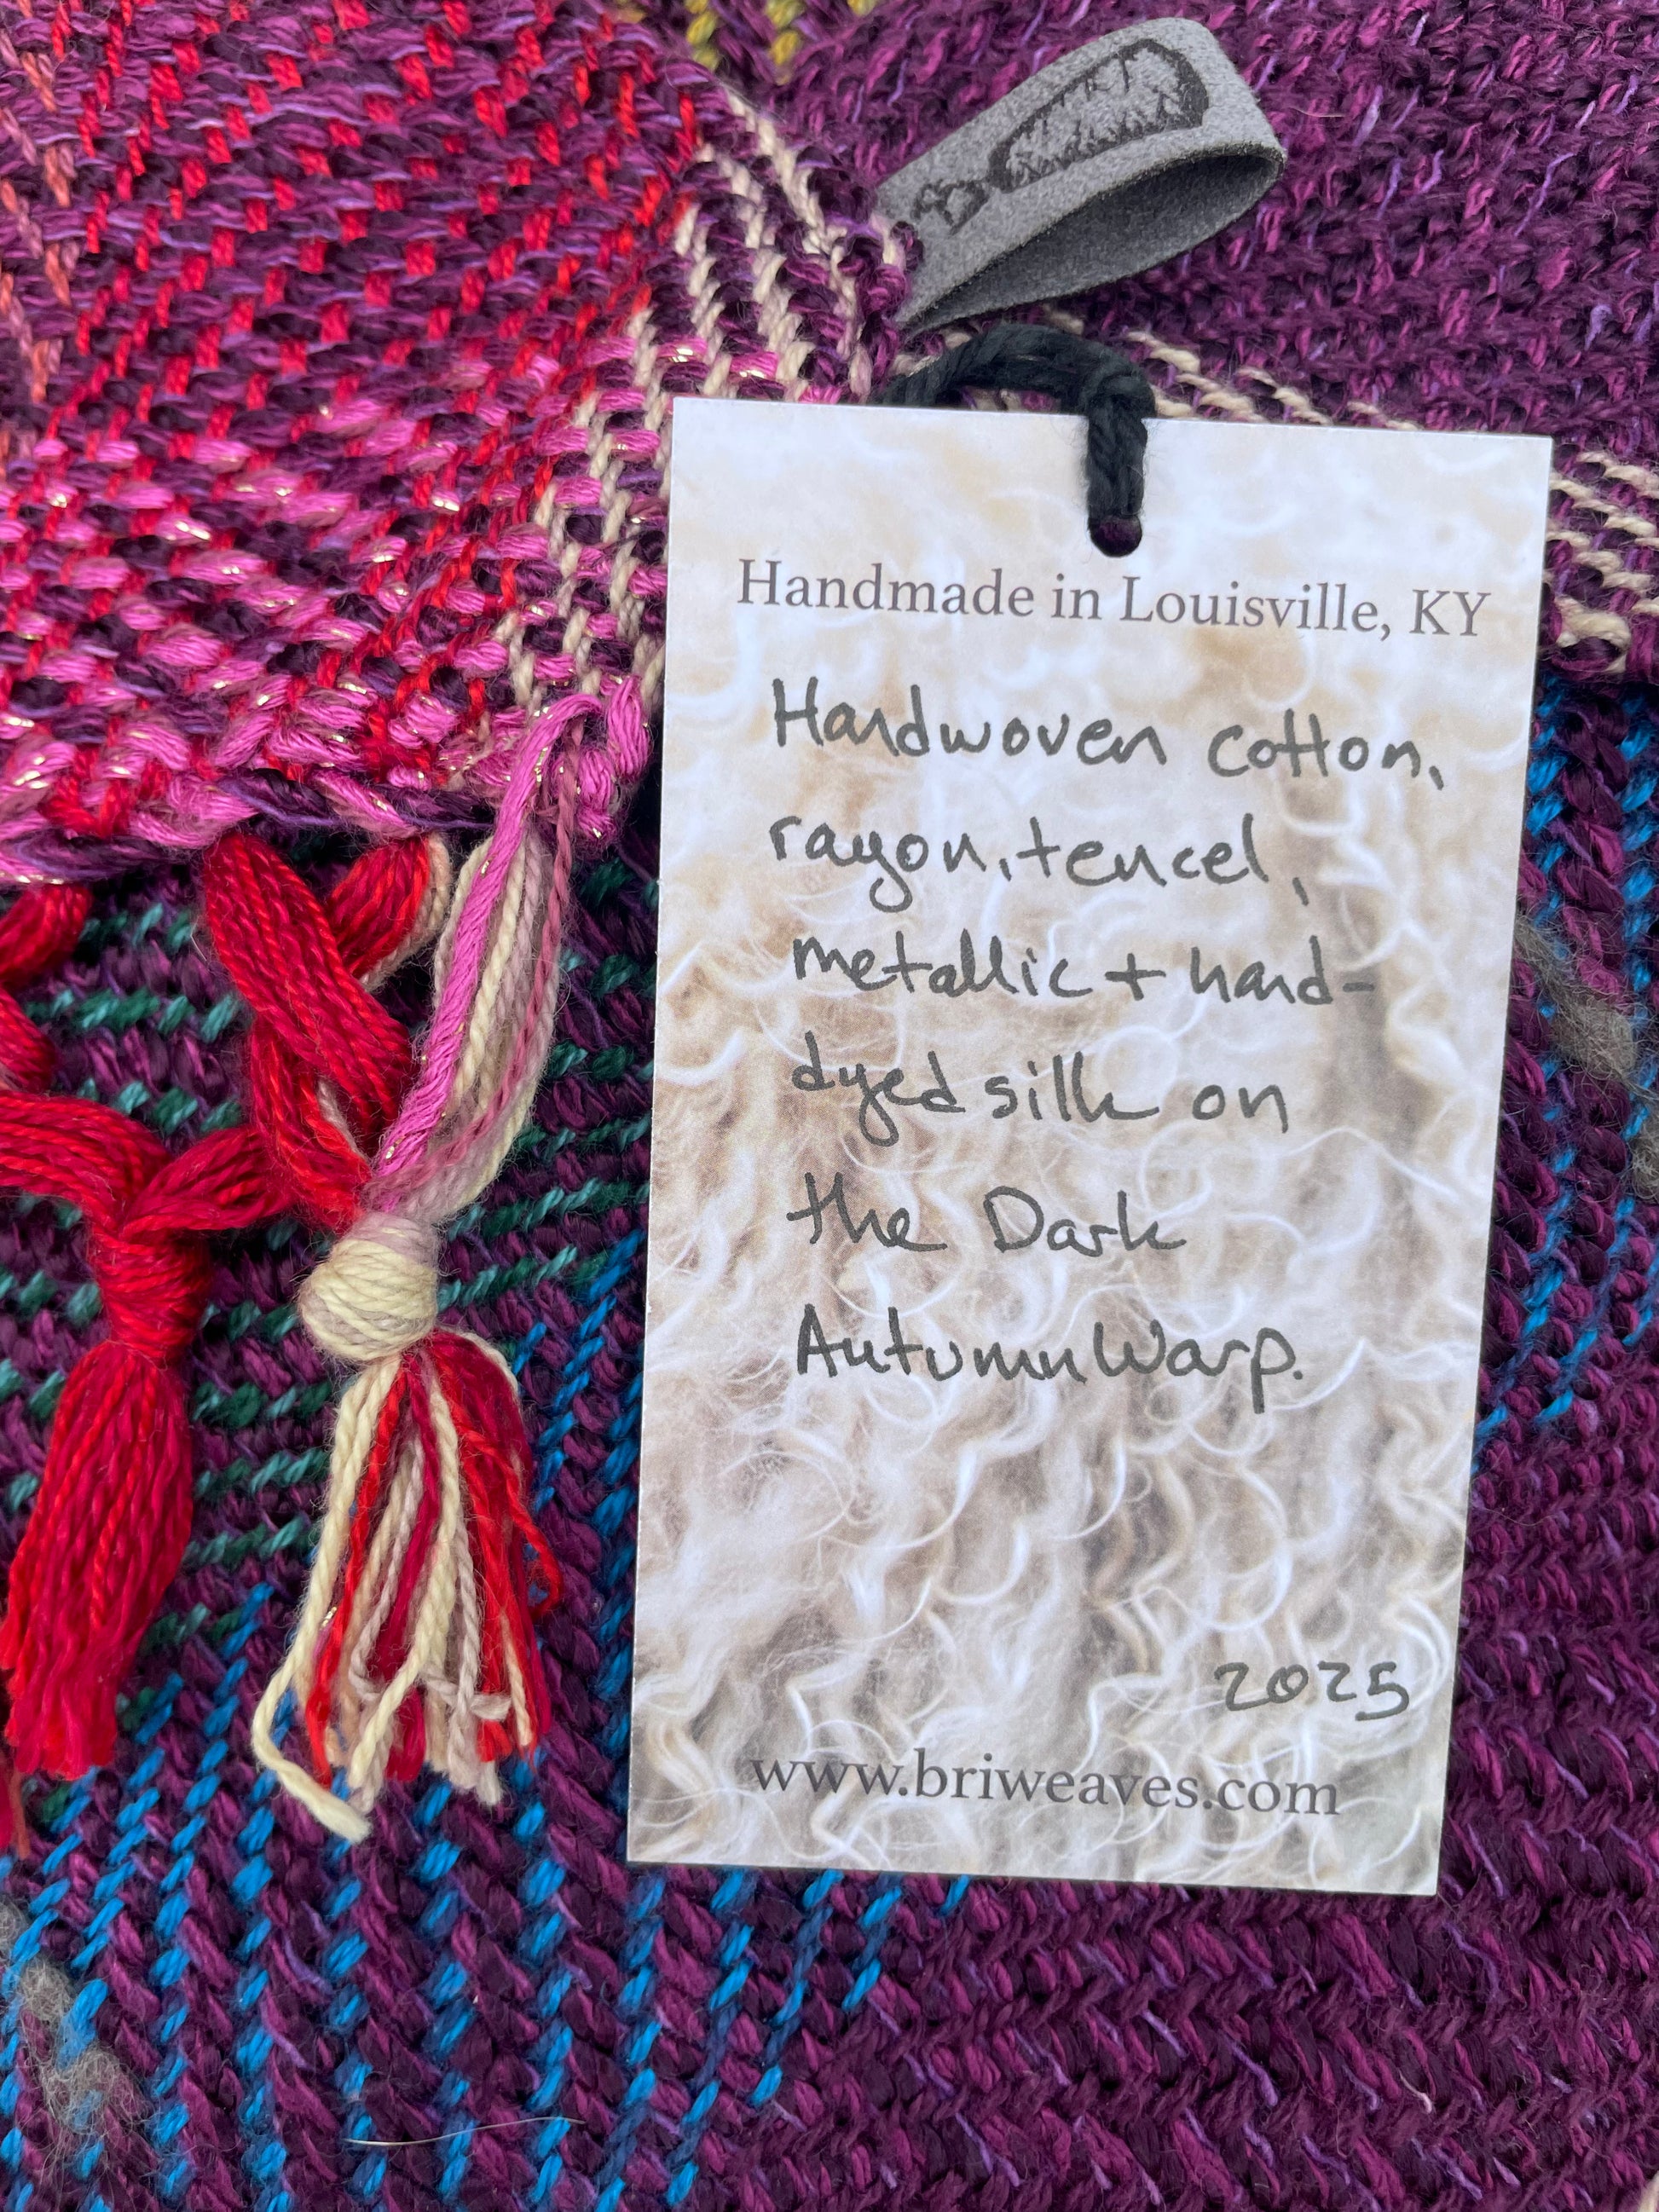 Handmade in Louisville, KY
Handwoven cotton,
rayon, tencel,
metallic + hand-
dyed silk on
the Dark
Autumn Warp.
2025
www.briweaves.com